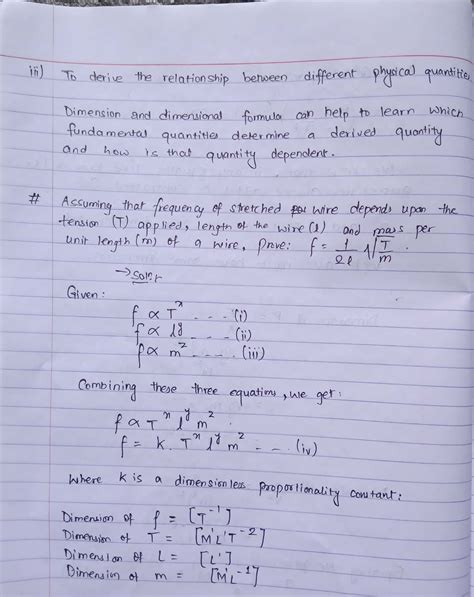 iii) To derive the relationship between different physical quantities
Dimension and dimensional formula can help to learn which
fundamental quantities determine a derived quantity
and how is that quantity dependent.
# Assuming that frequency of stretched wire depends upon the
tension (T) applied, length of the wire (l) and mass per
unit length (m) of a wire, Prove: f = 1/2l √T/m
→ Soln:
Given:
f ∝ T^x - - - - (i)
f ∝ l^y - - - - (ii)
f ∝ m^z - - - - (iii)
Combining these three equations, we get:
f ∝ T^x l^y m^z
f = k. T^x l^y m^z - - - (iv)
Where k is a dimensionless proportionality constant:
Dimension of f = [T^-1]
Dimension of T = [M^1L^1T^-2]
Dimension of L = [L^1]
Dimension of m = [M^1L^-1]